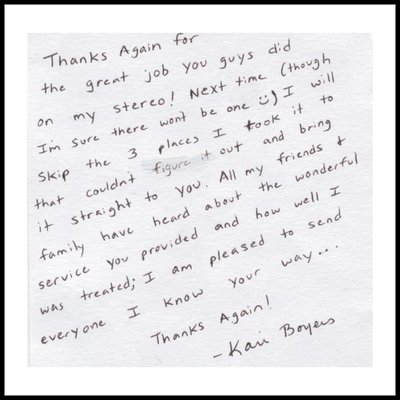 Thanks Again for
the great job you guys did
on my stereo! Next time (though
I'm sure there wont be one :)) I will
skip the 3 places I took it to
that couldn't figure it out and bring
it straight to you. All my friends &
family have heard about the wonderful
service you provided and how well I
was treated; I am pleased to send
everyone I know your way...
Thanks Again!
-Kari Boyers